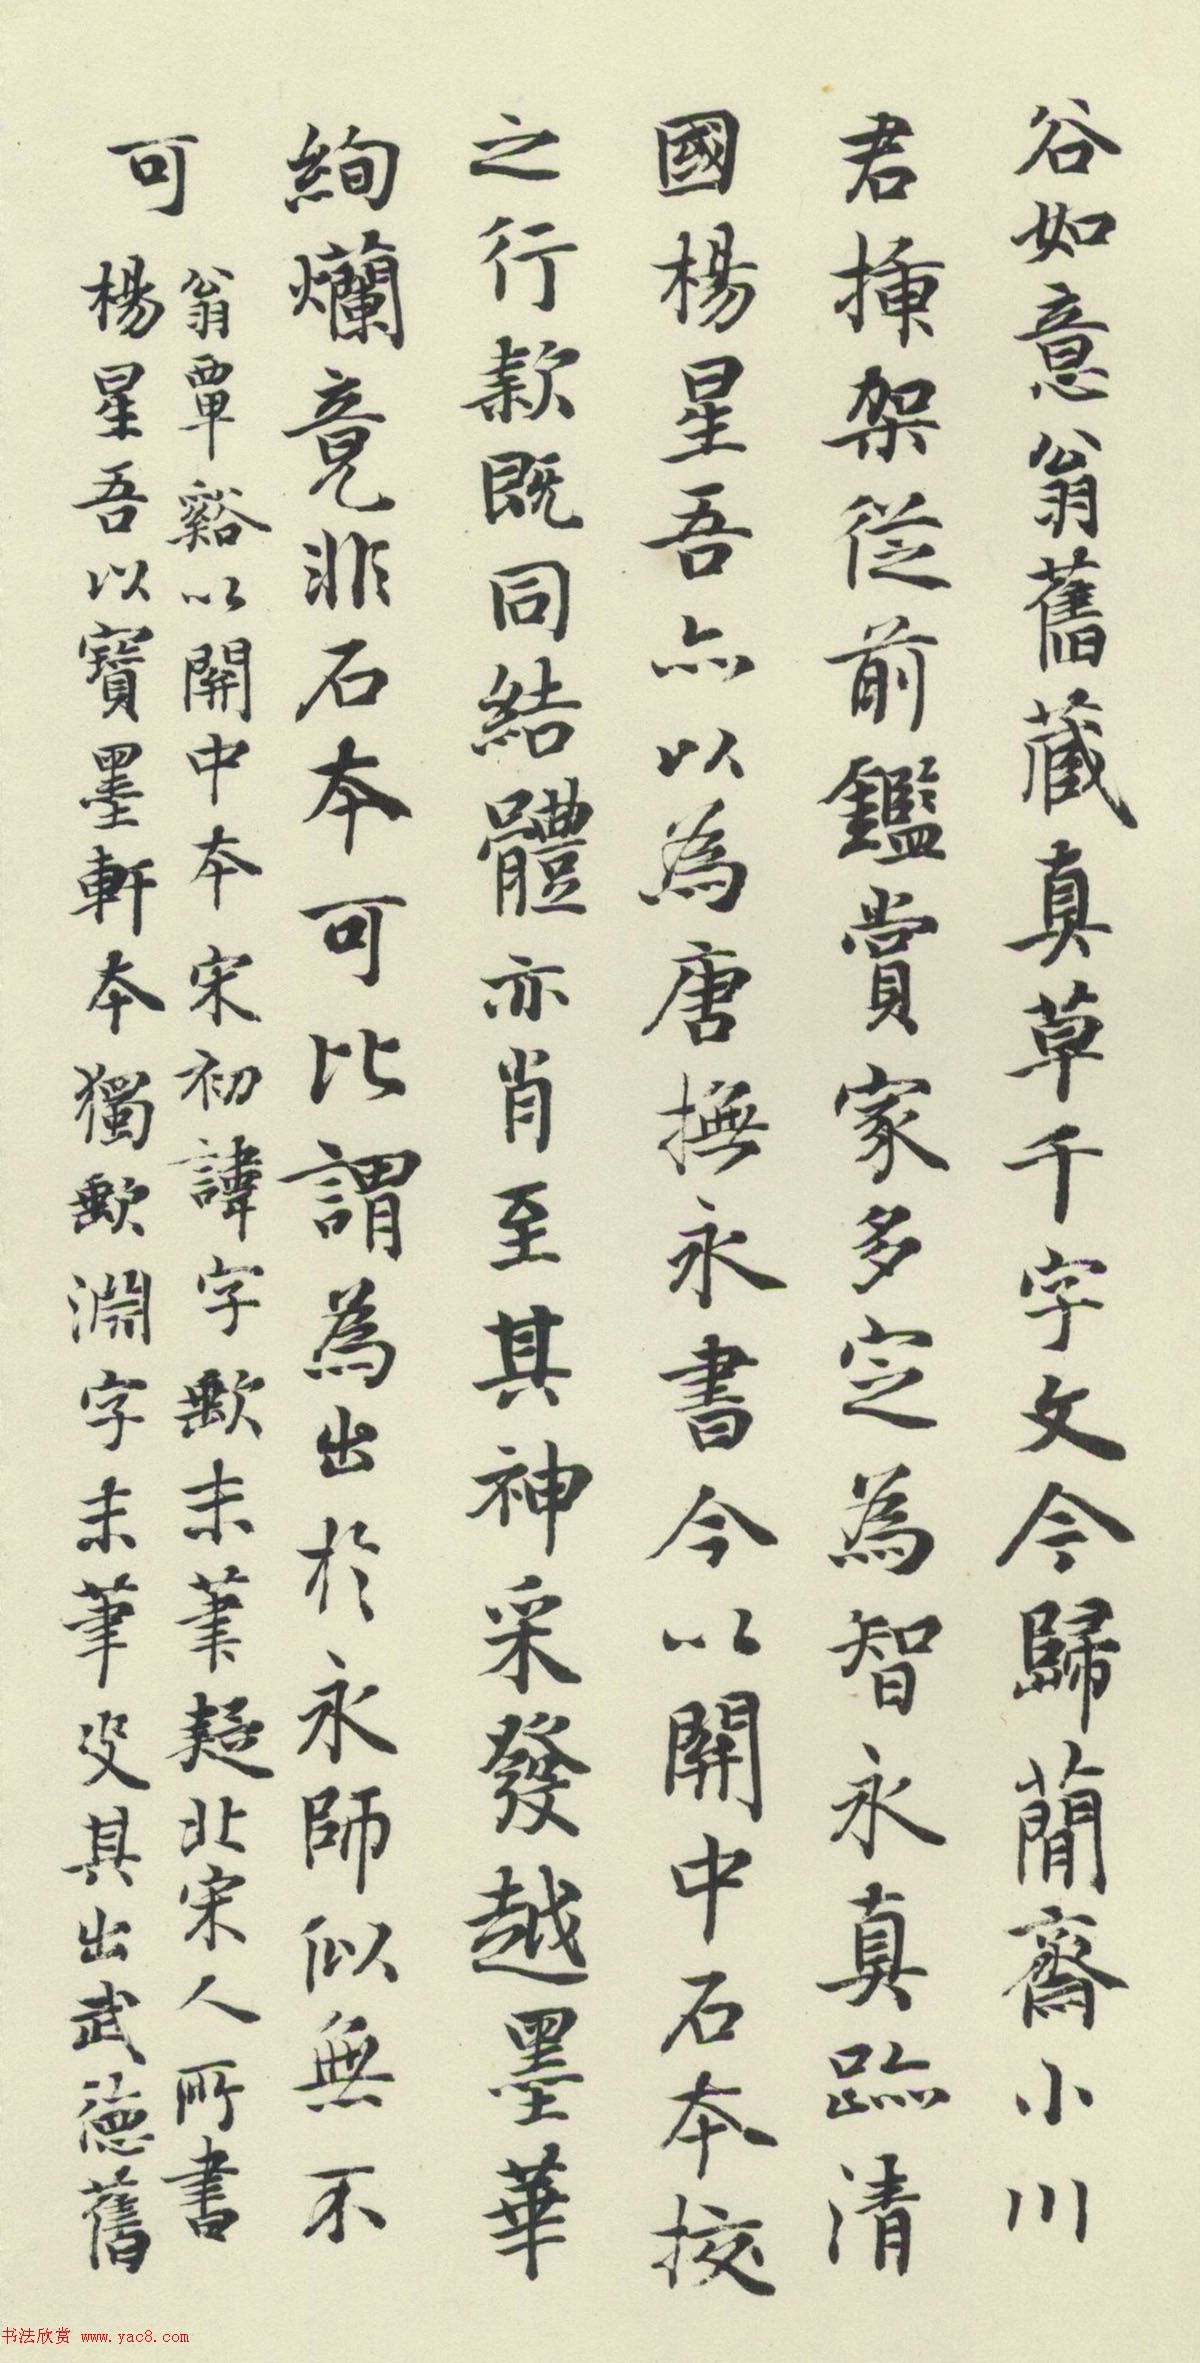 谷如意翁舊藏真草千字文今歸蕳齋小川
君揷架從前鑑賞家多定為智永真跡清
國楊星吾亦以為唐撫永書今以關中石本挍
之行款既同結體亦肖至其神采發越墨華
絢爛竟非石本可比謂為出於永師似無不
可
翁覃谿以關中本宋初諱字歇末筆疑北宋人所書
楊星吾以寶墨軒本獨歇淵字末筆定其出武德舊
书法欣赏 www.yac8.com